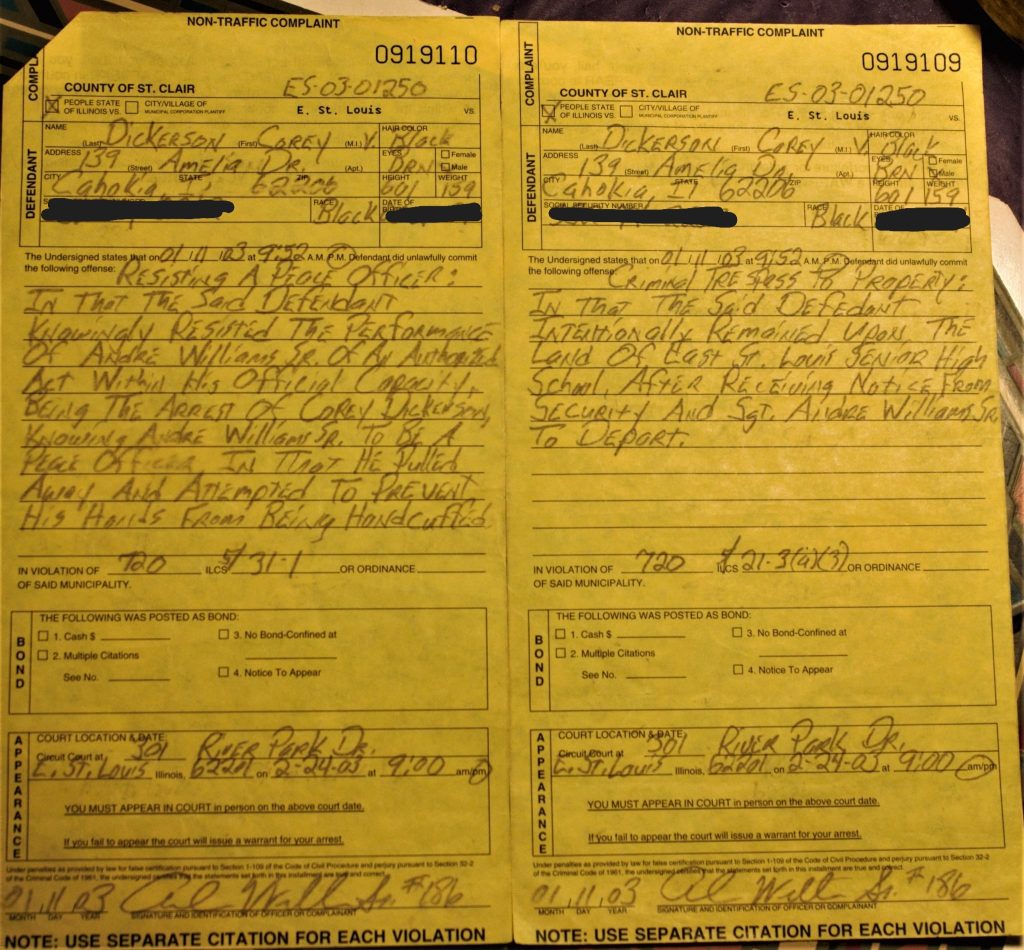 NON-TRAFFIC COMPLAINT
0919110
COMPLAINT
COUNTY OF ST. CLAIR
ES-03-01250
PEOPLE STATE OF ILLINOIS VS.
CITY/VILLAGE OF
MUNICIPAL CORPORATION PLAINTIFF
E. St. Louis
VS.
DEFENDANT
NAME
DICKERSON (Last) COREY (First) V. (M.I.)
HAIR COLOR Black
ADDRESS 139 (Street) Amelia Dr. (Apt.)
EYES BRN
Female
Male
CITY Cahokia, STATE ZIP 62206
HEIGHT 601 WEIGHT 159
RACE Black
DATE OF
The Undersigned states that on 01/11/03 at 9:52 A.M. P.M. Defendant did unlawfully commit
the following offense:
RESISTING A PEACE OFFICER:
IN THAT THE SAID DEFENDANT
KNOWINGLY RESISTED THE PERFORMANCE
OF ANDRE WILLIAMS SR. OF AN AUTHORIZED
ACT WITHIN HIS OFFICIAL CAPACITY,
BEING THE ARREST OF COREY DICKERSON,
KNOWING ANDRE WILLIAMS SR. TO BE A
PEACE OFFICER, IN THAT HE PULLED
AWAY AND ATTEMPTED TO PREVENT
HIS HANDS FROM BEING HANDCUFFED
IN VIOLATION OF 720 ILCS 5/31-1 OR ORDINANCE
OF SAID MUNICIPALITY.
BOND
THE FOLLOWING WAS POSTED AS BOND:
1. Cash $
3. No Bond-Confined at
2. Multiple Citations
See No.
4. Notice To Appear
APPEARANCE
COURT LOCATION & DATE:
Circuit Court at 301 RIVER PARK DR.
E. ST. LOUIS Illinois, 62201 on 2-24-03 at 9:00 am/pm
YOU MUST APPEAR IN COURT in person on the above court date.
If you fail to appear the court will issue a warrant for your arrest.
Under penalties as provided by law for false certification pursuant to Section 1-109 of the Code of Civil Procedure and perjury pursuant to Section 32-2
of the Criminal Code of 1961, the undersigned certifies that the statements set forth in this instrument are true and correct.
01,11,03 #186
MONTH DAY YEAR SIGNATURE AND IDENTIFICATION OF OFFICER OR COMPLAINANT
NOTE: USE SEPARATE CITATION FOR EACH VIOLATION
NON-TRAFFIC COMPLAINT
0919109
COMPLAINT
COUNTY OF ST. CLAIR
ES-03-01250
PEOPLE STATE OF ILLINOIS VS.
CITY/VILLAGE OF
MUNICIPAL CORPORATION PLAINTIFF
E. St. Louis
VS.
DEFENDANT
NAME
DICKERSON (Last) COREY (First) V. (M.I.)
HAIR COLOR Black
ADDRESS 139 (Street) Amelia Dr. (Apt.)
EYES BRN
Female
Male
CITY Cahokia, STATE IL ZIP 62206
HEIGHT 601 WEIGHT 159
SOCIAL SECURITY NUMBER
RACE Black
DATE OF
The Undersigned states that on 01/11/03 at 9:52 A.M. P.M. Defendant did unlawfully commit
the following offense:
CRIMINAL TRESPASS TO PROPERTY:
IN THAT THE SAID DEFEDANT
INTENTIONALLY REMAINED UPON THE
LAND OF EAST ST. LOUIS SENIOR HIGH
SCHOOL, AFTER RECEIVING NOTICE FROM
SECURITY AND SGT. ANDRE WILLIAMS SR
TO DEPART.
IN VIOLATION OF 720 ILCS 5/21-3(a)(3) OR ORDINANCE
OF SAID MUNICIPALITY.
BOND
THE FOLLOWING WAS POSTED AS BOND:
1. Cash $
3. No Bond-Confined at
2. Multiple Citations
See No.
4. Notice To Appear
APPEARANCE
COURT LOCATION & DATE:
Circuit Court at 301 RIVER PARK DR.
E. ST. LOUIS Illinois, 62201 on 2-24-03 at 9:00 am/pm
YOU MUST APPEAR IN COURT in person on the above court date.
If you fail to appear the court will issue a warrant for your arrest.
Under penalties as provided by law for false certification pursuant to Section 1-109 of the Code of Civil Procedure and perjury pursuant to Section 32-2
of the Criminal Code of 1961, the undersigned certifies that the statements set forth in this instrument are true and correct.
01,11,03 #186
MONTH DAY YEAR SIGNATURE AND IDENTIFICATION OF OFFICER OR COMPLAINANT
NOTE: USE SEPARATE CITATION FOR EACH VIOLATION